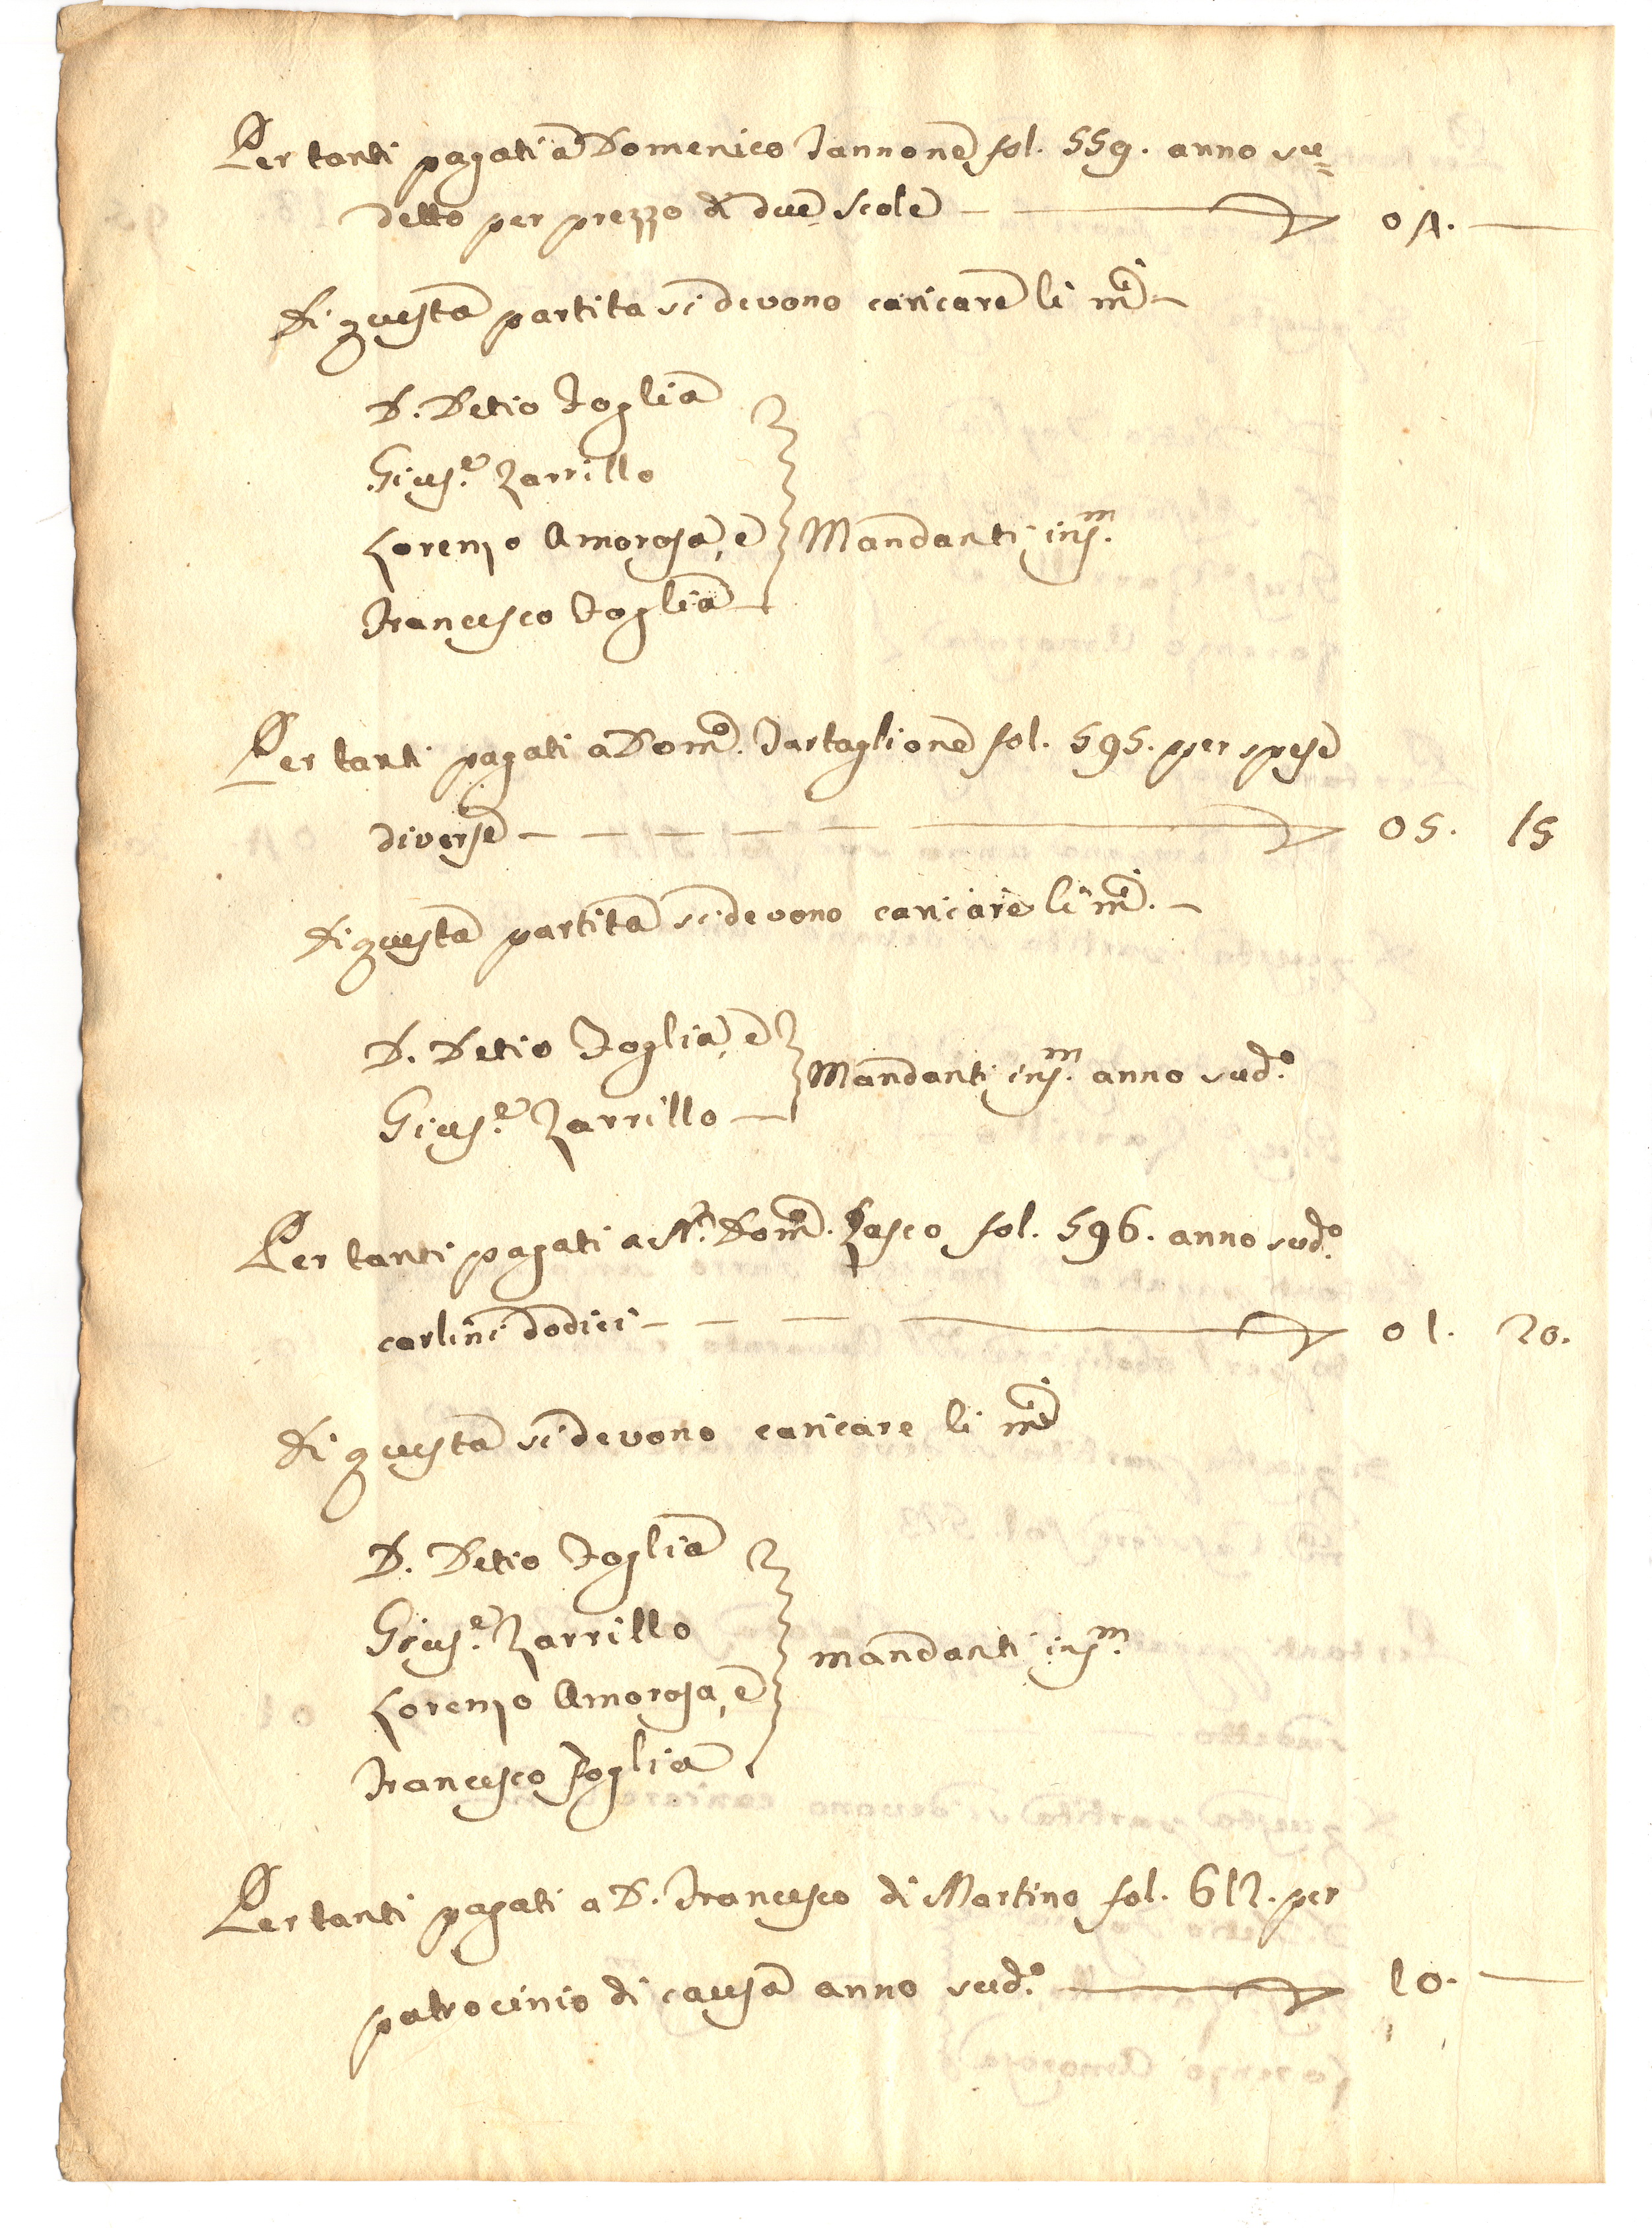 Per tanti pagati a Domenico Iannone fol. 559. anno su=
detto per prezzo di due scole — 04. —
Di questa partita si devono caricare li m.ci —
D. Detio Foglia
Gius.e Zarrillo
Lorenzo Amorosa, e Mandanti ins.m
Francesco Foglia
Per tanti pagati a Dom.co Tartaglione fol. 595. per spese
diverse — — — — — 05. 15
Di questa partita si devono caricare li m.ci —
D. Detio Foglia, e
Mandanti ins.m anno sud.o
Gius.e Zarrillo —
Per tanti pagati a N.r Dom.co Zasco fol. 596. anno sud.o
carlini dodici — — — 01. 20.
Di questa si devono caricare li m.ci
D. Detio Foglia
Gius.e Zarrillo
mandanti ins.m
Lorenzo Amorosa, e
Francesco Foglia
Per tanti pagati a D. Francesco di Martino fol. 612. per
patrocinio di causa anno sud.o — 10. —